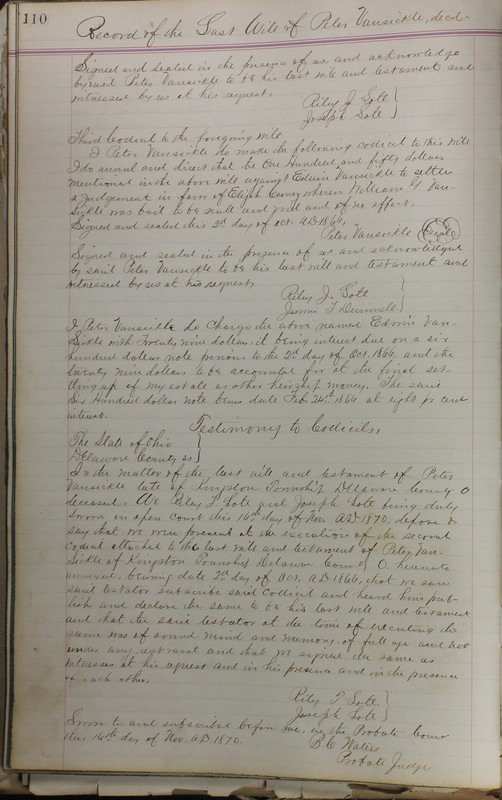 110
Record of the Last Will of Peter Vansickle, decd
Signed and sealed in the presence of us and acknowledge
by said Peter Vansickle to be his last will and testament and
witnessed by us at his request.
Riley J. Lott
Joseph Lott
Third Codicil to the foregoing will
I Peter Vansickle do make the following codicil to this will
I do annul and direct that the One Hundred and fifty dollars
mentioned in the above will against Edwin Vansickle to settle
a judgement in favor of Elijah wherein William G. Van-
Sickle was bail to be null and void and of no effect.
Signed and sealed this 3rd day of Oct. A.D. 1866.
Peter Vansickle Seal
Signed and sealed in the presence of us and acknowledged
by said Peter Vansickle to be his last will and testament and
witnessed by us at his request.
Riley J. Lott
I Peter Vansickle do charge the above named Edwin Van-
Sickle with Twenty nine dollars. it being interest due on a six
hundred dollar note previous to the 2nd day of Oct. 1866, and the
twenty nine dollars to be accounted for at the final set-
tling up of my estate as other heirship money. The said
Six Hundred dollar note bears date Feb 24th 1866 at eight per cent
interest.
Testimony to Codicils.
The State of Ohio
Delaware County ss
In the matter of the last will and testament of Peter
Vansickle late of Kingston Township Delaware County O
deceased. We Riley T. Lott and Joseph Lott being duly
sworn in open Court this 16th day of Nov. A.D. 1870, depose &
say that we were present at the execution of the second
codicil attached to the last will and testament of Peter Van-
Sickle of Kingston Township Delaware County O. hereunto
annexed. bearing date 2nd day of Oct. A.D. 1866, that we saw
said testator subscribe said Codicil and heard him pub-
lish and declare the same to be his last will and testament
and that the said testator at the time of executing the
same was of sound mind and memory, of full age and not
under any restraint and that we signed the same as
witnesses at his request and in his presence and in the presence
of each other.
Riley T. Lott
Joseph Lott
Sworn to and subscribed before me, by the Probate Court
this 16th day of Nov. A.D. 1870.
B. C. Waters
Probate Judge